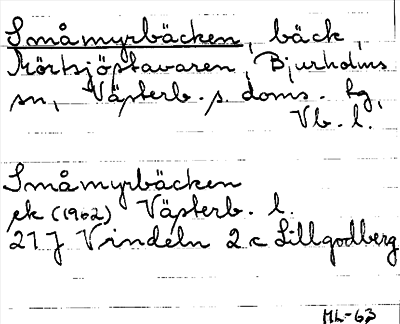 Småmyrbäcken, bäck,
Mörtsjöstavaren, Bjurholms
sn, Västerb. s. doms. hg,
Vb. l.
Småmyrbäcken
ek (1962) Västerb. l.
21 J Vindeln 2 c Lillgodberg
ML-63